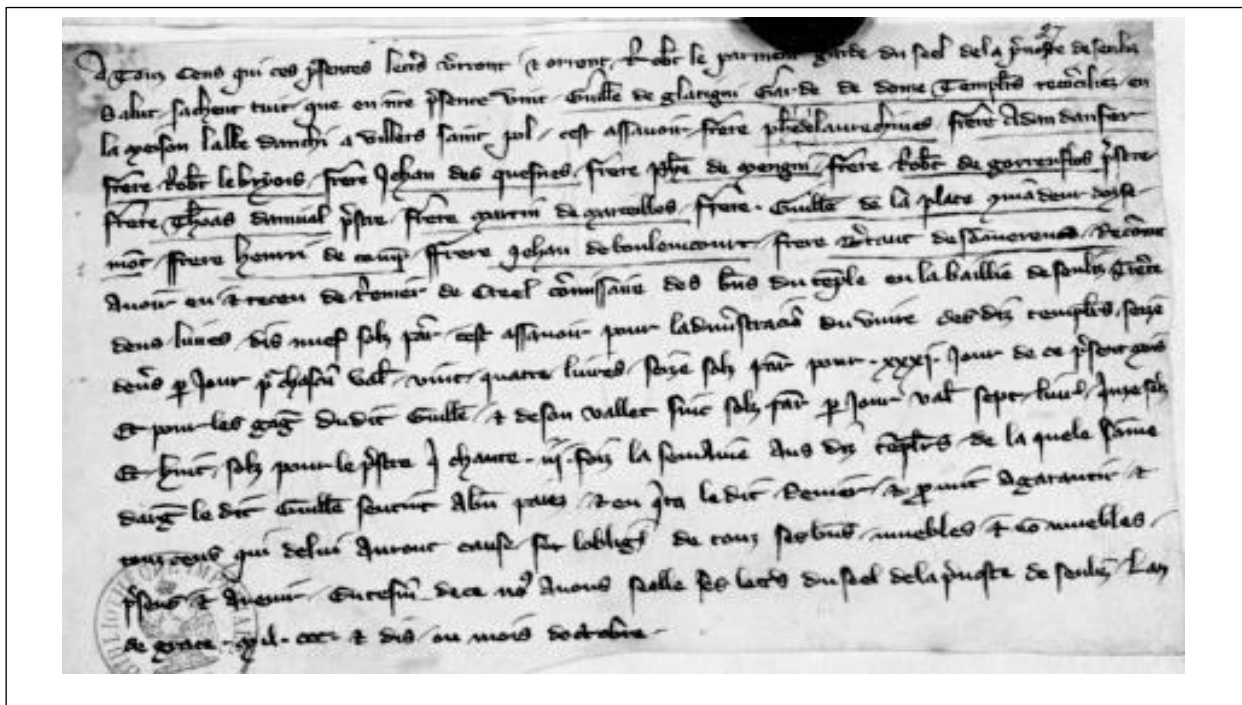 A Touz Ceus qui ces psentes lettres verront & orront Robt le parmentier garde du seel de la pvoste de senliz
Salut sachent tuit que en nre psence vint Guille de glatigni Garde de douze Templrs reconciliez en
la meson labbe dauchi a villers saint pol cest assavoir frere frere Adan danfer
frere Robt le briois frere Jehan des quesnes frere phe de frere Robt de gorrenflos pstre
frere Thoas danival pstre frere martin de marceilles frere Guille de la place
mot frere henri de frere Jehan de bouloncourt frere Recognut
Avoir eu & receu de Renier de Creel commissaire des biens du temple en la baillie de senliz Trente
deus livres dis nuef solz par cest assavoir pour ladmistracion du vivre des diz templrs seize
deners p Jour p chascun val vint quatre livres seize solz par pour xxxj Jour de ce psent mois
Et pour les gag dudit Guille & de son vallet cinc solz par p Jour val sept livres quinze solz
Et huit solz pour le pstre q chante iij fois la semaine Aus diz templrs de la quele somme
darg le dit Guille se tint A bn paiez & en qta le dit Renier & pmist A garantir &
touz ceus qui de lui Auront cause sur lobligon de touz ses biens muebles & no muebles
psens & Avenir En tesmoing de ce nos Avons seelle ses lettres du seel de la pvoste de senliz Lan
de grace mil ccc & dis ou mois doctobre